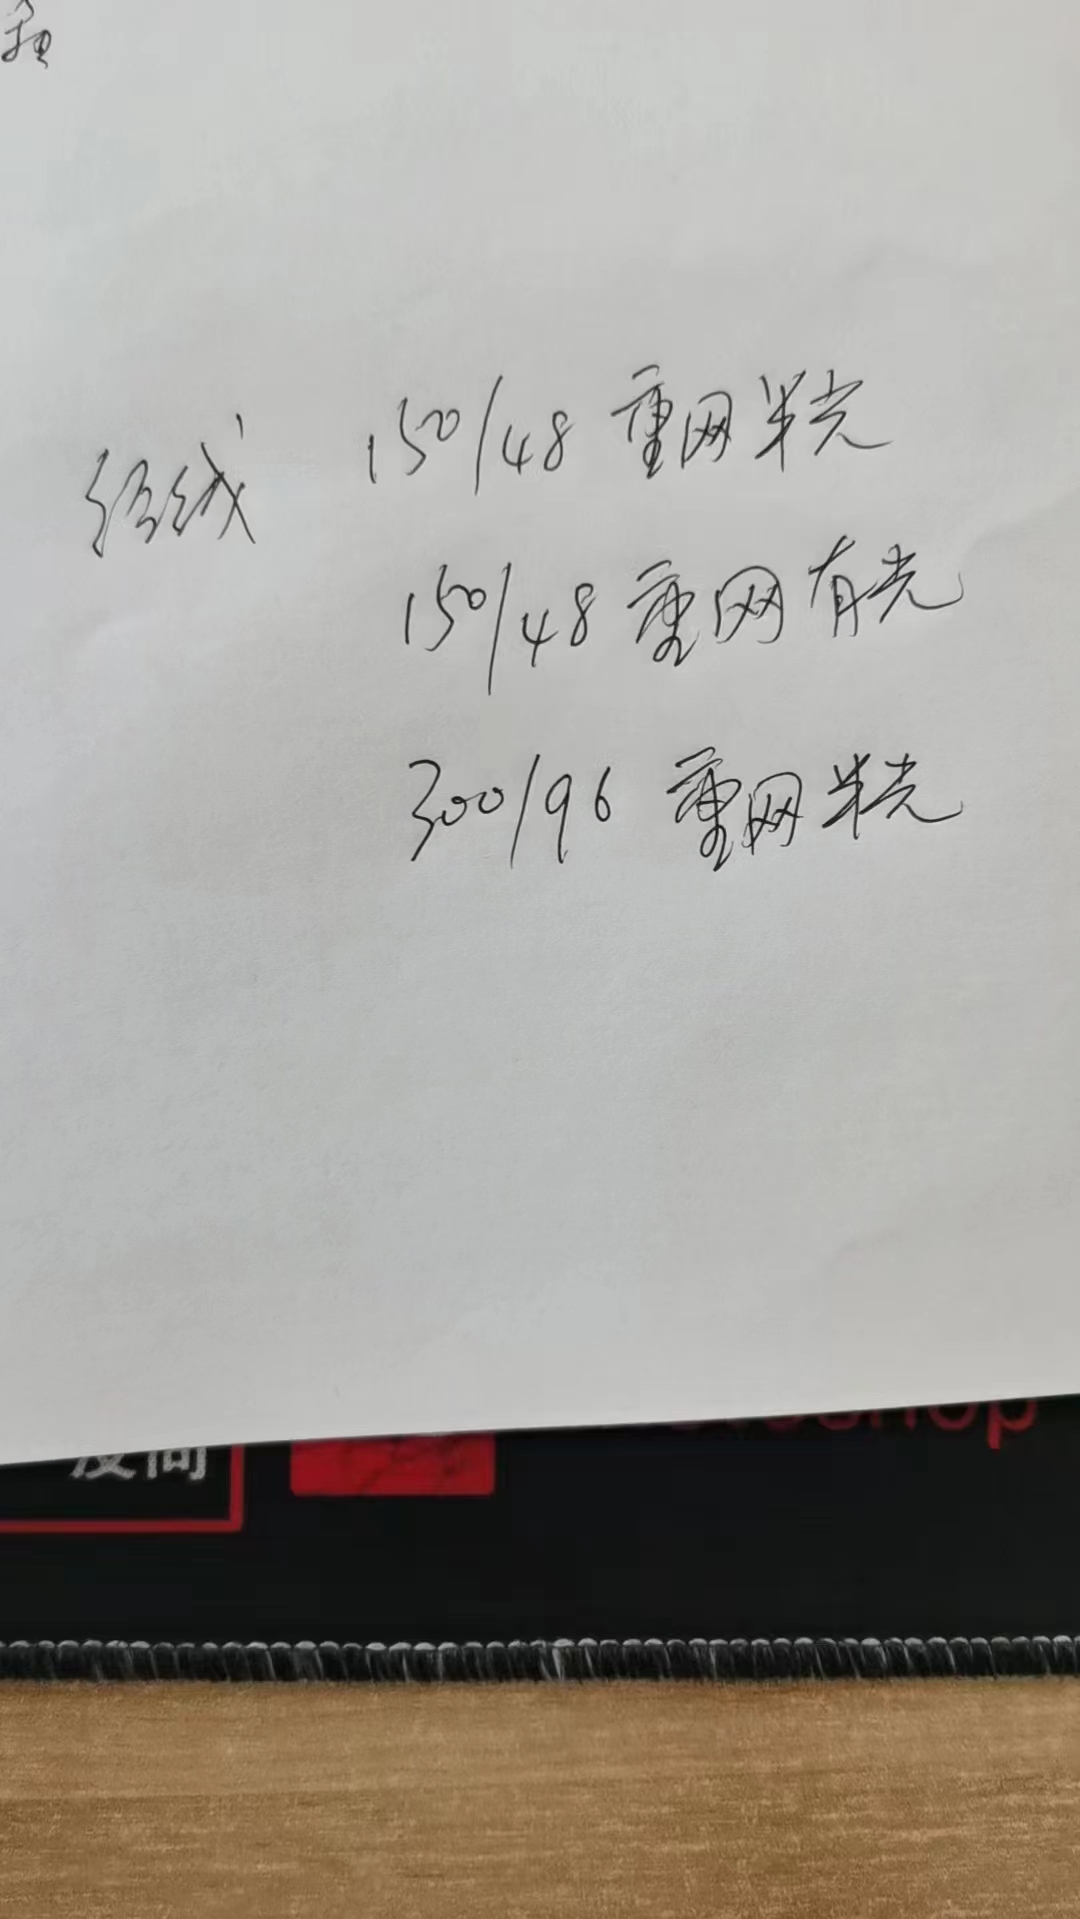 经线 150/48 重网半光
150/48 重网有光
300/96 重网半光